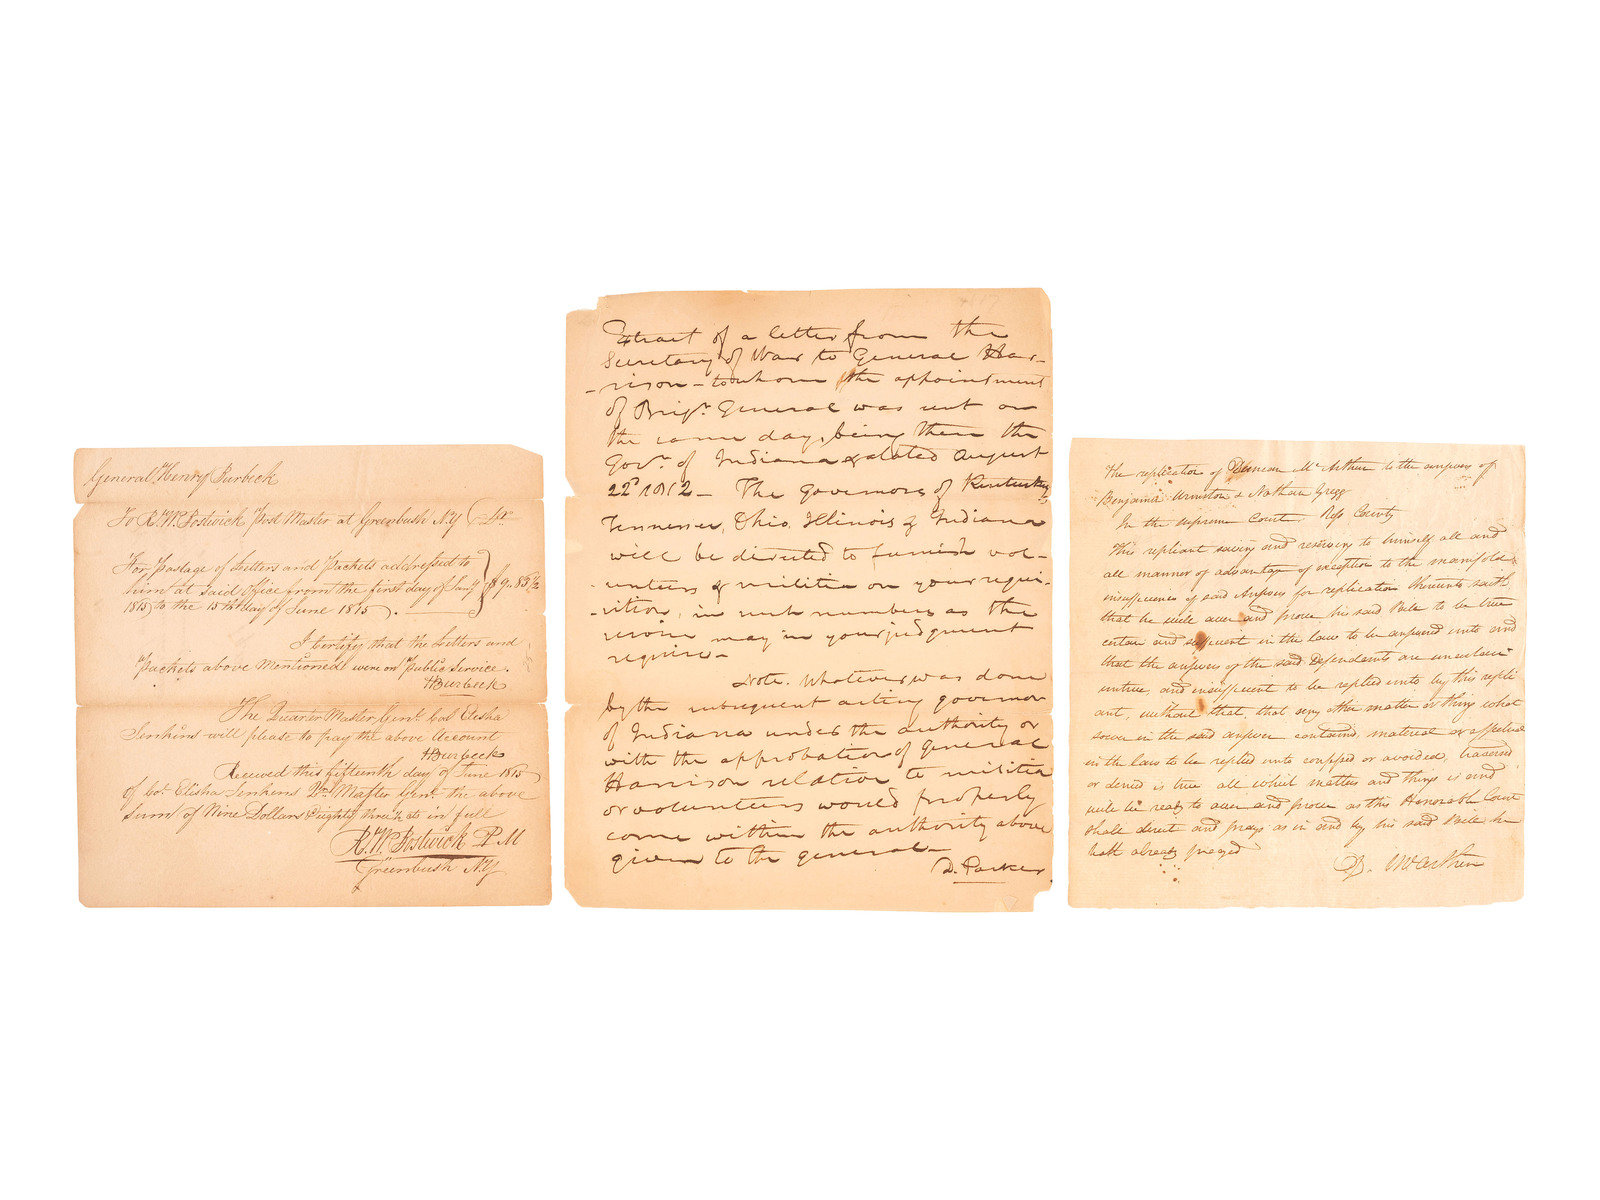 General Henry Burbeck
To R. W. Bostwick Post Master at Greenbush N.Y. Dr.
For Postage of Letters and Packets addressed to
him at said Office from the first day of Jany
1815 to the 15th day of June 1815. $9.83
I Certify that the Letters and
Packets above Mentioned were on Public Service.
HBurbeck
The Quarter Master Genl. Col Elisha
Jenkins will please to pay the above Account
HBurbeck
Received this fifteenth day of June 1815
of Col. Elisha Jenkins Qr. Master Genl. the above
Sum of Nine Dollars Eighty three cts in full
R. W. Bostwick P M
Greenbush N.Y
Extract of a letter from the
Secretary of War to General Har-
-rison - to whom the appointment
of Brigr. General was sent on
the same day, being then the
Govr. of Indiana & dated August
22d 1812 - The Governors of Kentucky,
Tennessee, Ohio, Illinois & Indiana
will be directed to furnish vol-
-unteers & militia on your requi-
-sition, in such numbers as the
service may in your judgment
require -
Note. Whatever was done
by the subsequent acting governor
of Indiana under the authority or
with the approbation of General
Harrison relative to militia
or volunteers would properly
come within the authority above
given to the general -
D. Parker.
The replication of Duncan Mc Arthur to the answers of
Benjamin Urmston & Nathan Gregg
In the supreme Court Ross County
This repliant saving and reserving to himself all and
all manner of advantage of exception to the manifold
insufficiency of said Answers for replication thereunto saith
that he will aver and prove his said Bill to be true
certain and sufficient in the law to be answered unto and
that the answers of the said Defendants are uncertain
untrue and insufficient to be replied unto by this repli
ant, without that, that any other matter or thing what
soever in the said answer contained, material or effectual
in the law to be replied unto confessed or avoided, traversed
or denied is true all which matters and things is and
will be ready to aver and prove as this Honorable Court
shall direct and prays as in and by his said Bill he
hath already prayed
D. McArthur